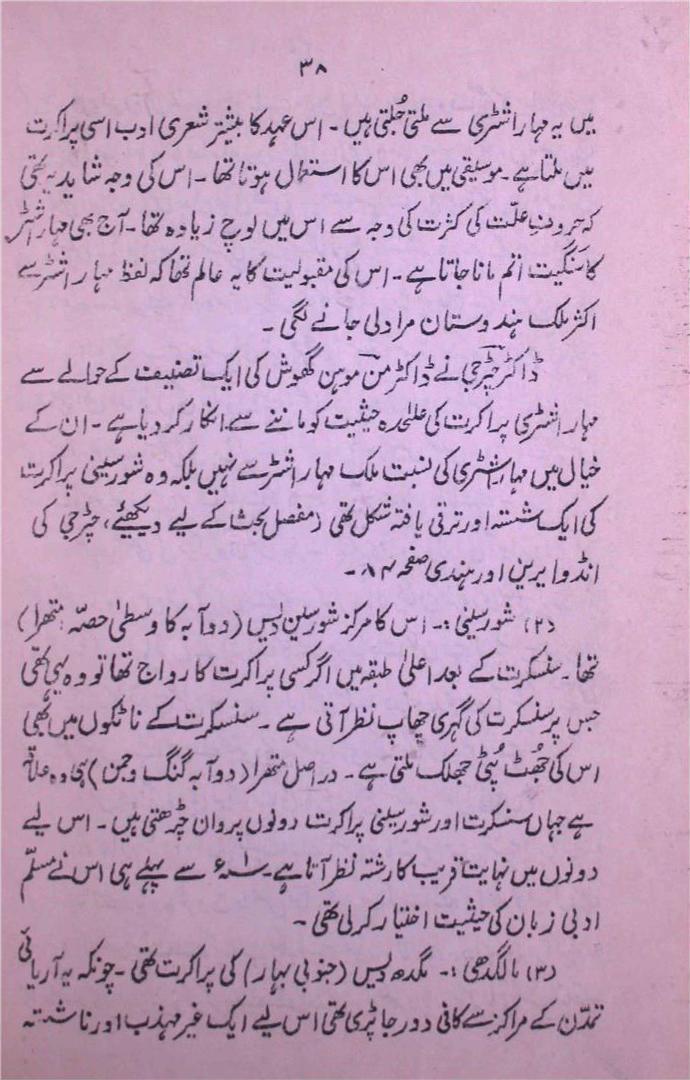 ۳۸
ہیں یہ مہاراشٹری سے ملتی جُلتی ہیں ۔ اس عہد کا بیشتر شعری ادب اسی پراکرت
میں ملتا ہے ۔ موسیقی میں بھی اس کا استعمال ہوتا تھا ۔ اس کی وجہ شاید یہ تھی
کہ حروفِ علّت کی کثرت کی وجہ سے اس میں لوچ زیادہ تھا ۔ آج بھی مہاراشٹر
کا سنگیت اتم مانا جاتا ہے ۔ اس کی مقبولیت کا یہ عالم تھا کہ لفظ مہاراشٹر سے
اکثر ملک ہندوستان مراد لی جانے لگی ۔
ڈاکٹر چٹرجی نے ڈاکٹر من موہن گھوش کی ایک تصنیف کے حوالے سے
مہاراشٹری پراکرت کی علیٰحدہ حیثیت کو ماننے سے انکار کر دیا ہے ۔ ان کے
خیال میں مہاراشٹری کی نسبت ملک مہاراشٹر سے نہیں بلکہ وہ شورسینی پراکرت
کی ایک شستہ اور ترقی یافتہ شکل تھی (مفصل بحث کے لیے دیکھئے، چٹرجی کی
انڈو ایرین اور ہندی صفحہ ۸۴ ۔
(۲) شورسینی :۔ اس کا مرکز شورسین دیس (دوآبہ کا وسطیٰ حصّہ متھرا)
تھا ۔ سنسکرت کے بعد اعلیٰ طبقہ میں اگر کسی پراکرت کا رواج تھا تو وہ یہی تھی
جس پر سنسکرت کی گہری چھاپ نظر آتی ہے ۔ سنسکرت کے ناٹکوں میں بھی
اس کی جھُٹ پُٹی جھلک ملتی ہے ۔ دراصل متھرا (دوآبہ گنگ و جمن) ہی وہ علاقہ
ہے جہاں سنسکرت اور شورسینی پراکرت دونوں پروان چڑھتی ہیں ۔ اس لیے
دونوں میں نہایت قریب کا رشتہ نظر آتا ہے ۔ سے پہلے ہی اس نے مسلّم
ادبی زبان کی حیثیت اختیار کرلی تھی ۔
(۳) ماگدھی :۔ مگدھ دیس (جنوبی بہار) کی پراکرت تھی ۔ چونکہ یہ آریائی
تمدّن کے مراکز سے کافی دور جا پڑی تھی اس لیے ایک غیر مہذب اور ناشستہ